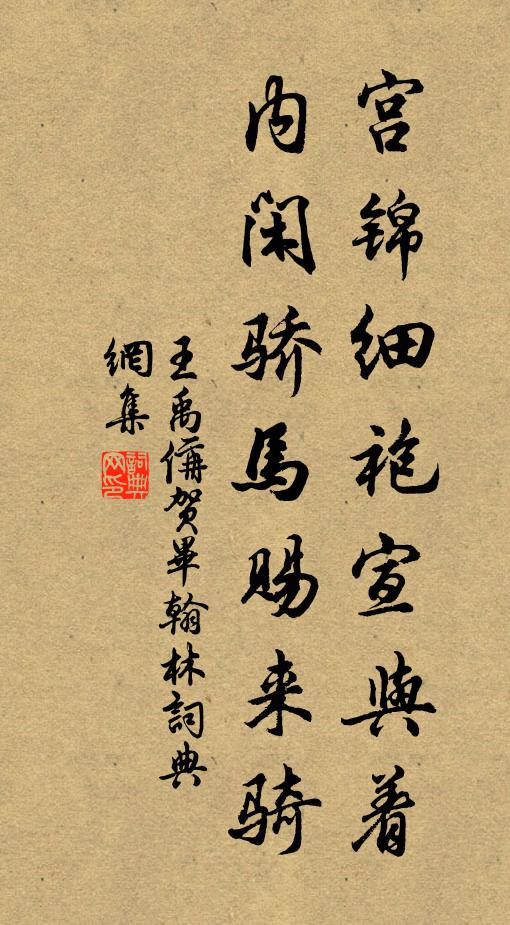 宫锦细袍宣与着
内闲骄马赐来骑
王禹偁贺毕翰林词典
網集
詞典網印